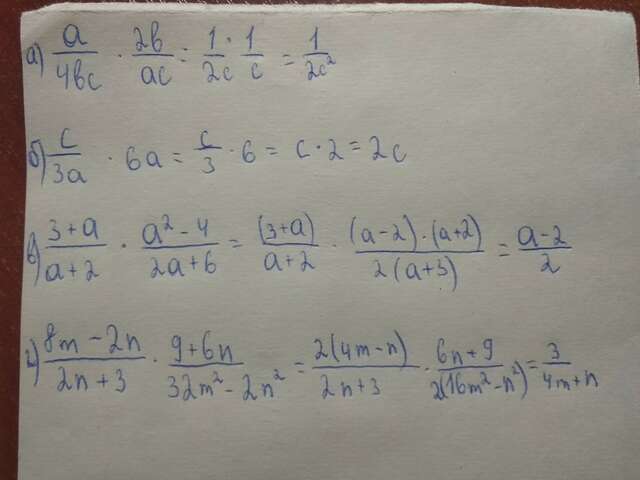 а) a/4bc · 2b/ac = 1/2c · 1/c = 1/2c²
б) c/3a · 6a = c/3 · 6 = c · 2 = 2c
в) 3+a/a+2 · a²-4/2a+6 = (3+a)/a+2 · (a-2)·(a+2)/2(a+3) = a-2/2
г) 8m-2n/2n+3 · 9+6n/32m²-2n² = 2(4m-n)/2n+3 · 6n+9/2(16m²-n²) = 3/4m+n